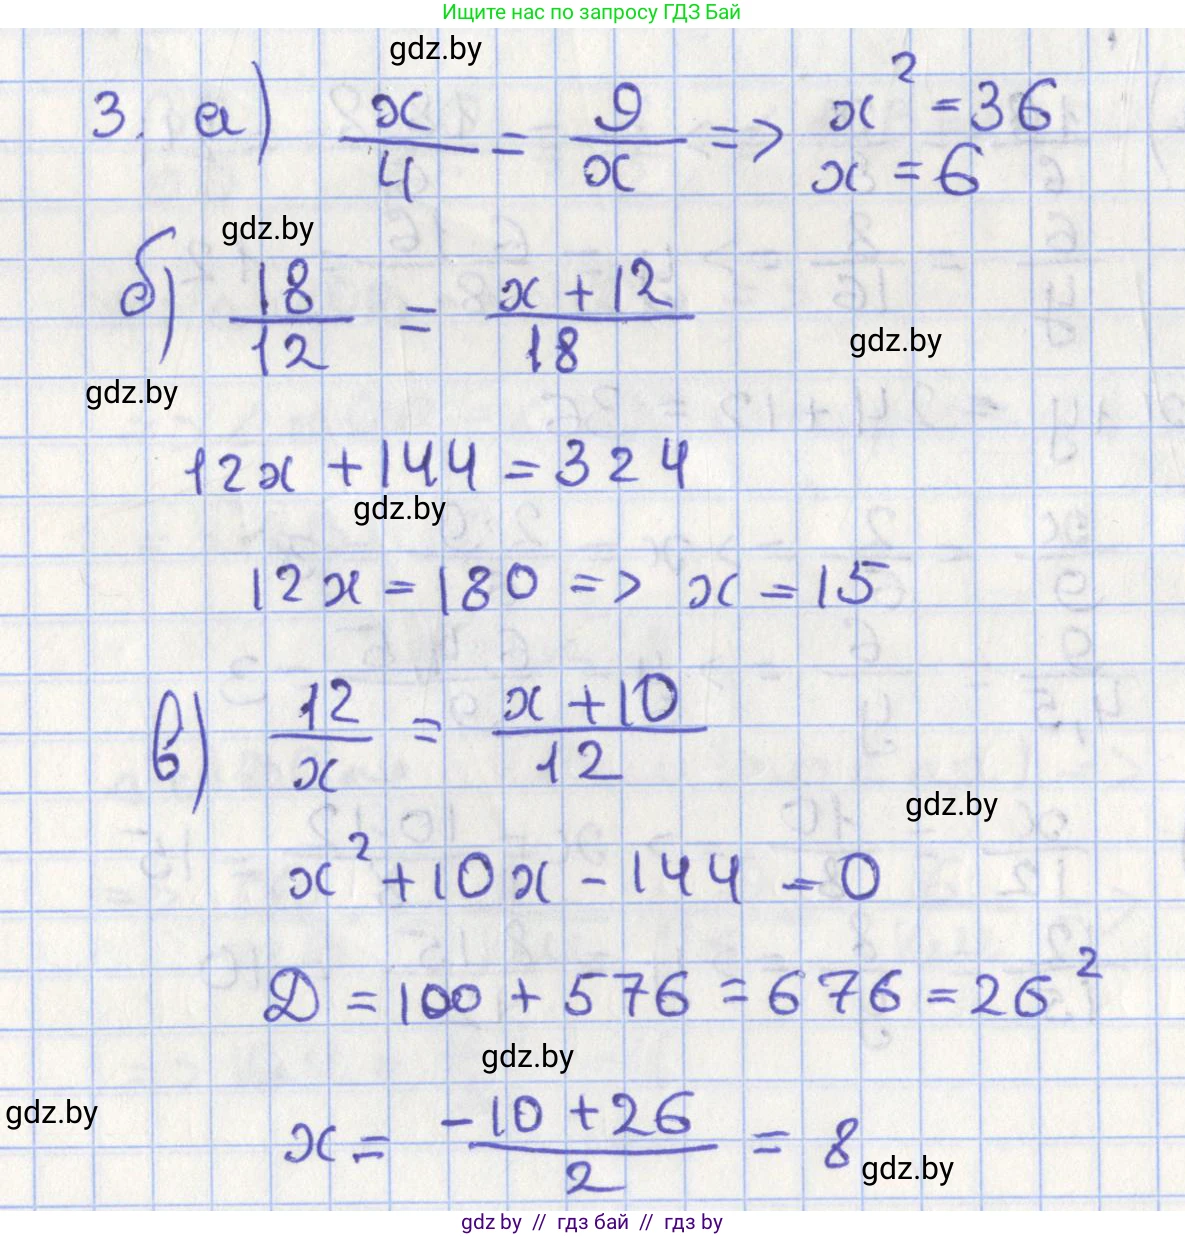 Ищите нас по запросу ГДЗ Бай
gdz.by
3. а) x/4 = 9/x => x² = 36
x = 6
gdz.by
б) 18/12 = (x + 12)/18
gdz.by
gdz.by
12x + 144 = 324
gdz.by
12x = 180 => x = 15
в) 12/x = (x + 10)/12
gdz.by
x² + 10x - 144 = 0
Д = 100 + 576 = 676 = 26²
gdz.by
gdz.by
x = (-10 + 26)/2 = 8
gdz.by
gdz by // гдз бай // гдз by